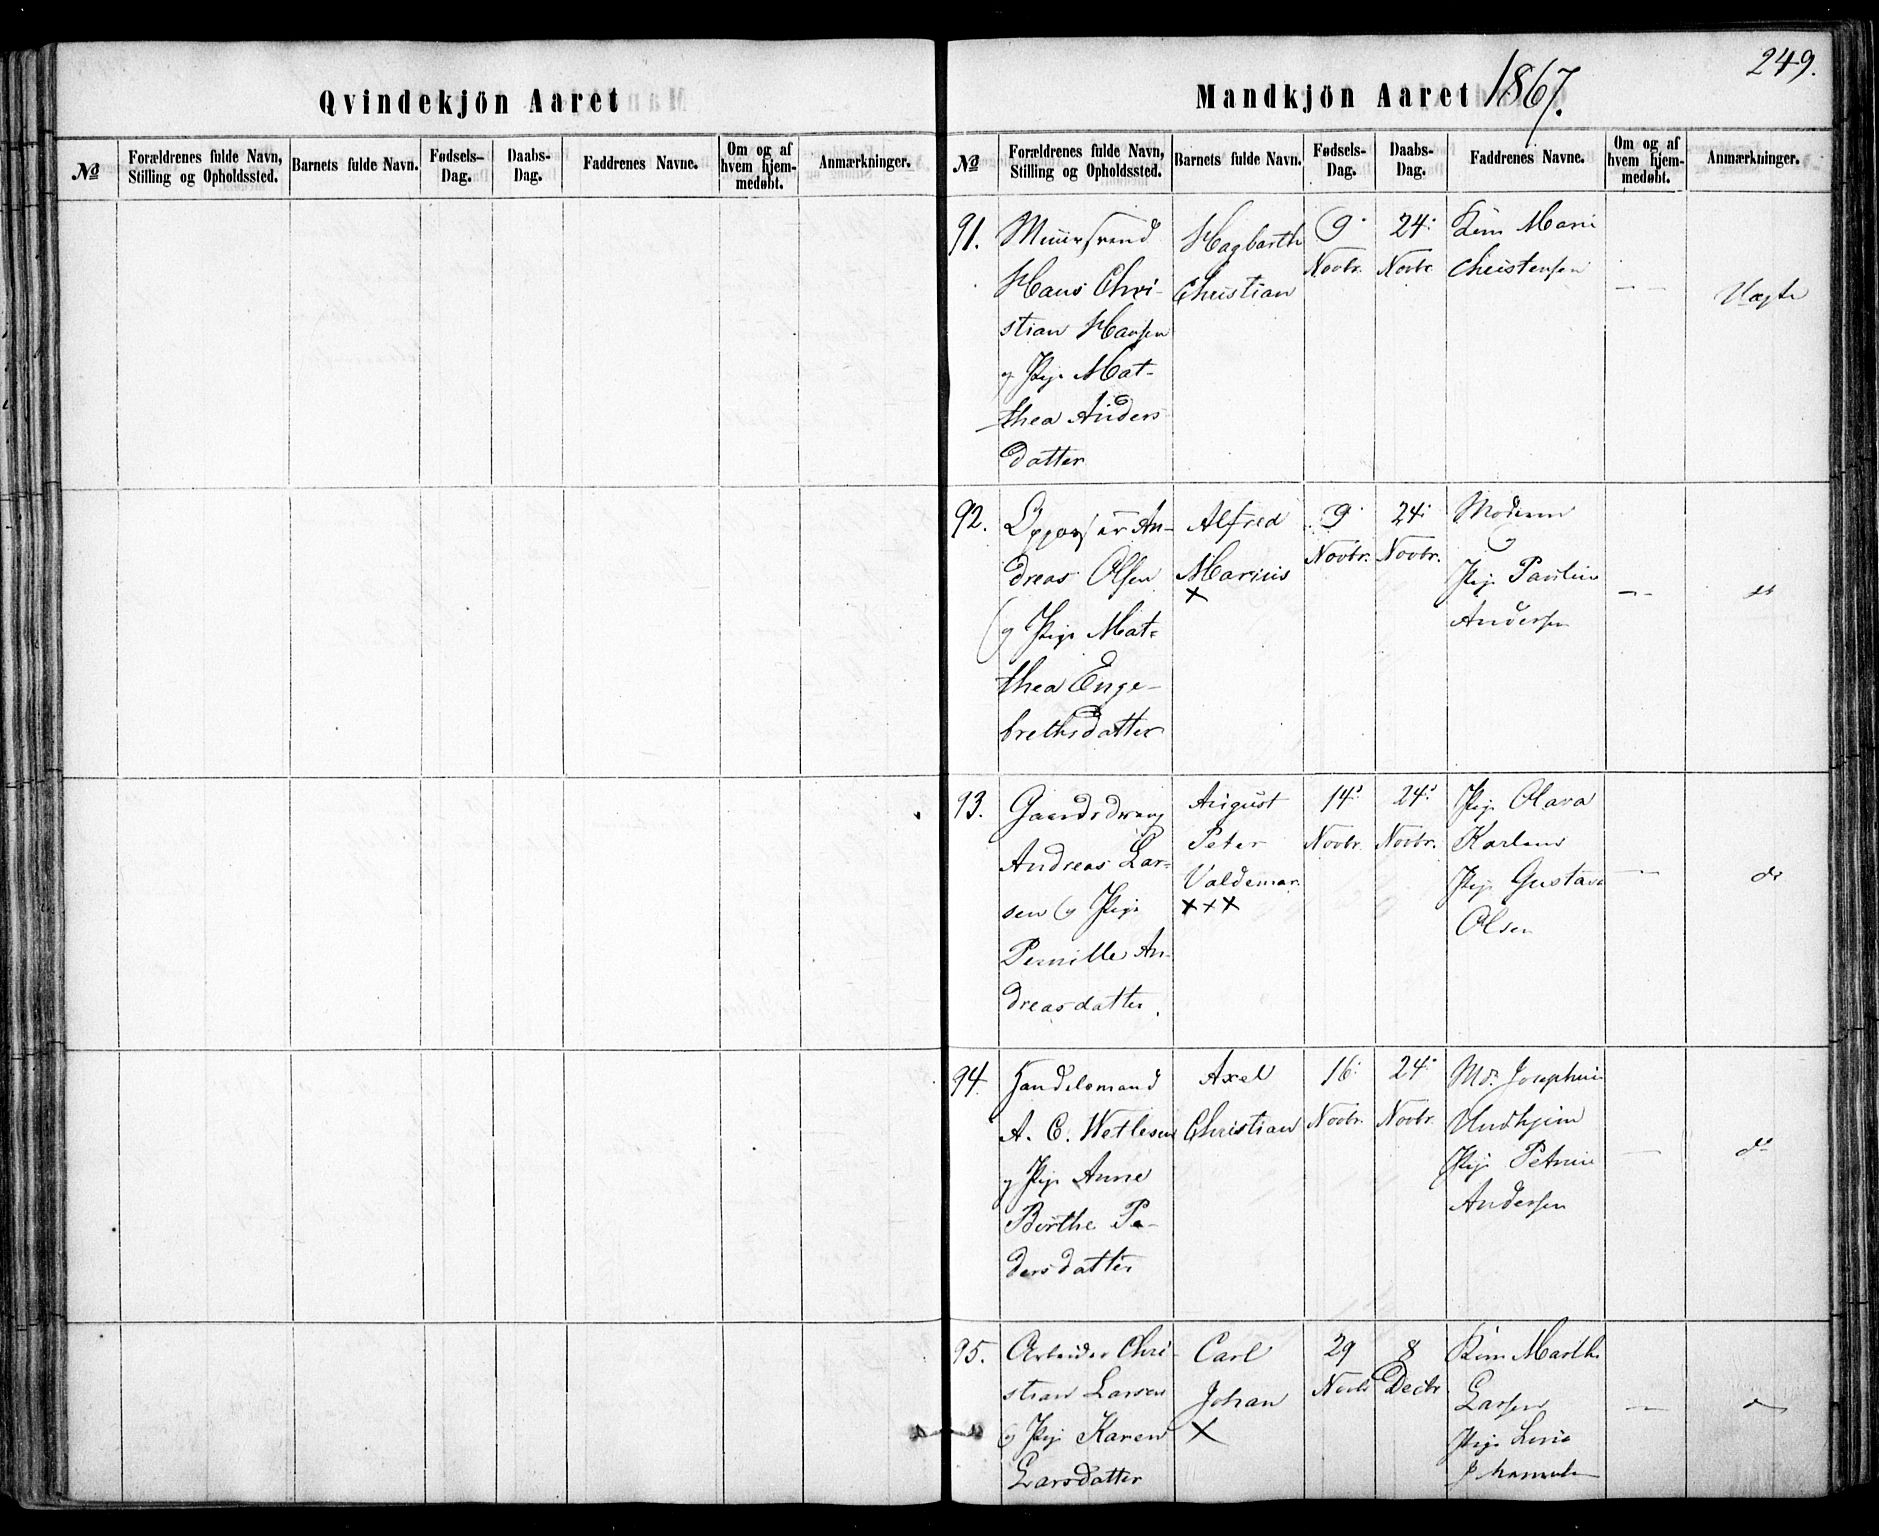 249.
Qvindekjön Aaret
Mandkjön Aaret 1867.
No
Forældrenes fulde Navn, Stilling og Opholdssted.
Barnets fulde Navn.
Fødsels-Dag.
Daabs-Dag.
Faddrenes Navne.
Om og af hvem hjem-medøbt.
Anmærkninger.
No
Forældrenes fulde Navn, Stilling og Opholdssted.
Barnets fulde Navn.
Fødsels-Dag.
Daabs-Dag.
Faddrenes Navne.
Om og af hvem hjem-medøbt.
Anmærkninger.
91.
Muursvend
Hans Chri-
stian Hansen
og Pige Mat-
thea Anders
datter
Hagbarth
Christian
9
Novbr.
24
Novbr
Marie
Christensen
—
Uægte
92.
An-
dreas Olsen
og Pige Mat-
thea Enge-
brethsdatter
Alfred
Marius
x
9
Novbr.
24
Novbr.
Moderen
Pige Pauline
Andersen
—
93.
Gaardsdreng
Andreas Lar-
sen og Pige
Pernille An-
dreasdatter.
August
Peter
Valdemar.
xxx
14
Novbr.
24
Novbr.
Pige Olava
Karlens
Pige Gustava
Olsen
—
do
94.
Handelsmand
A. C. Wetlesen
og Pige Anne
Berthe Pe-
dersdatter
Axel
Christian
16
Novbr.
24
Novbr.
Md. Josephine
Pige Petrine
Andersen
—
do
95.
Arbeider Chri-
stian Larsen
og Pige Karen
Larsdatter
Carl
Johan
X
29
Novbr
8
Decbr.
Marthe
Larsen
Pige
—